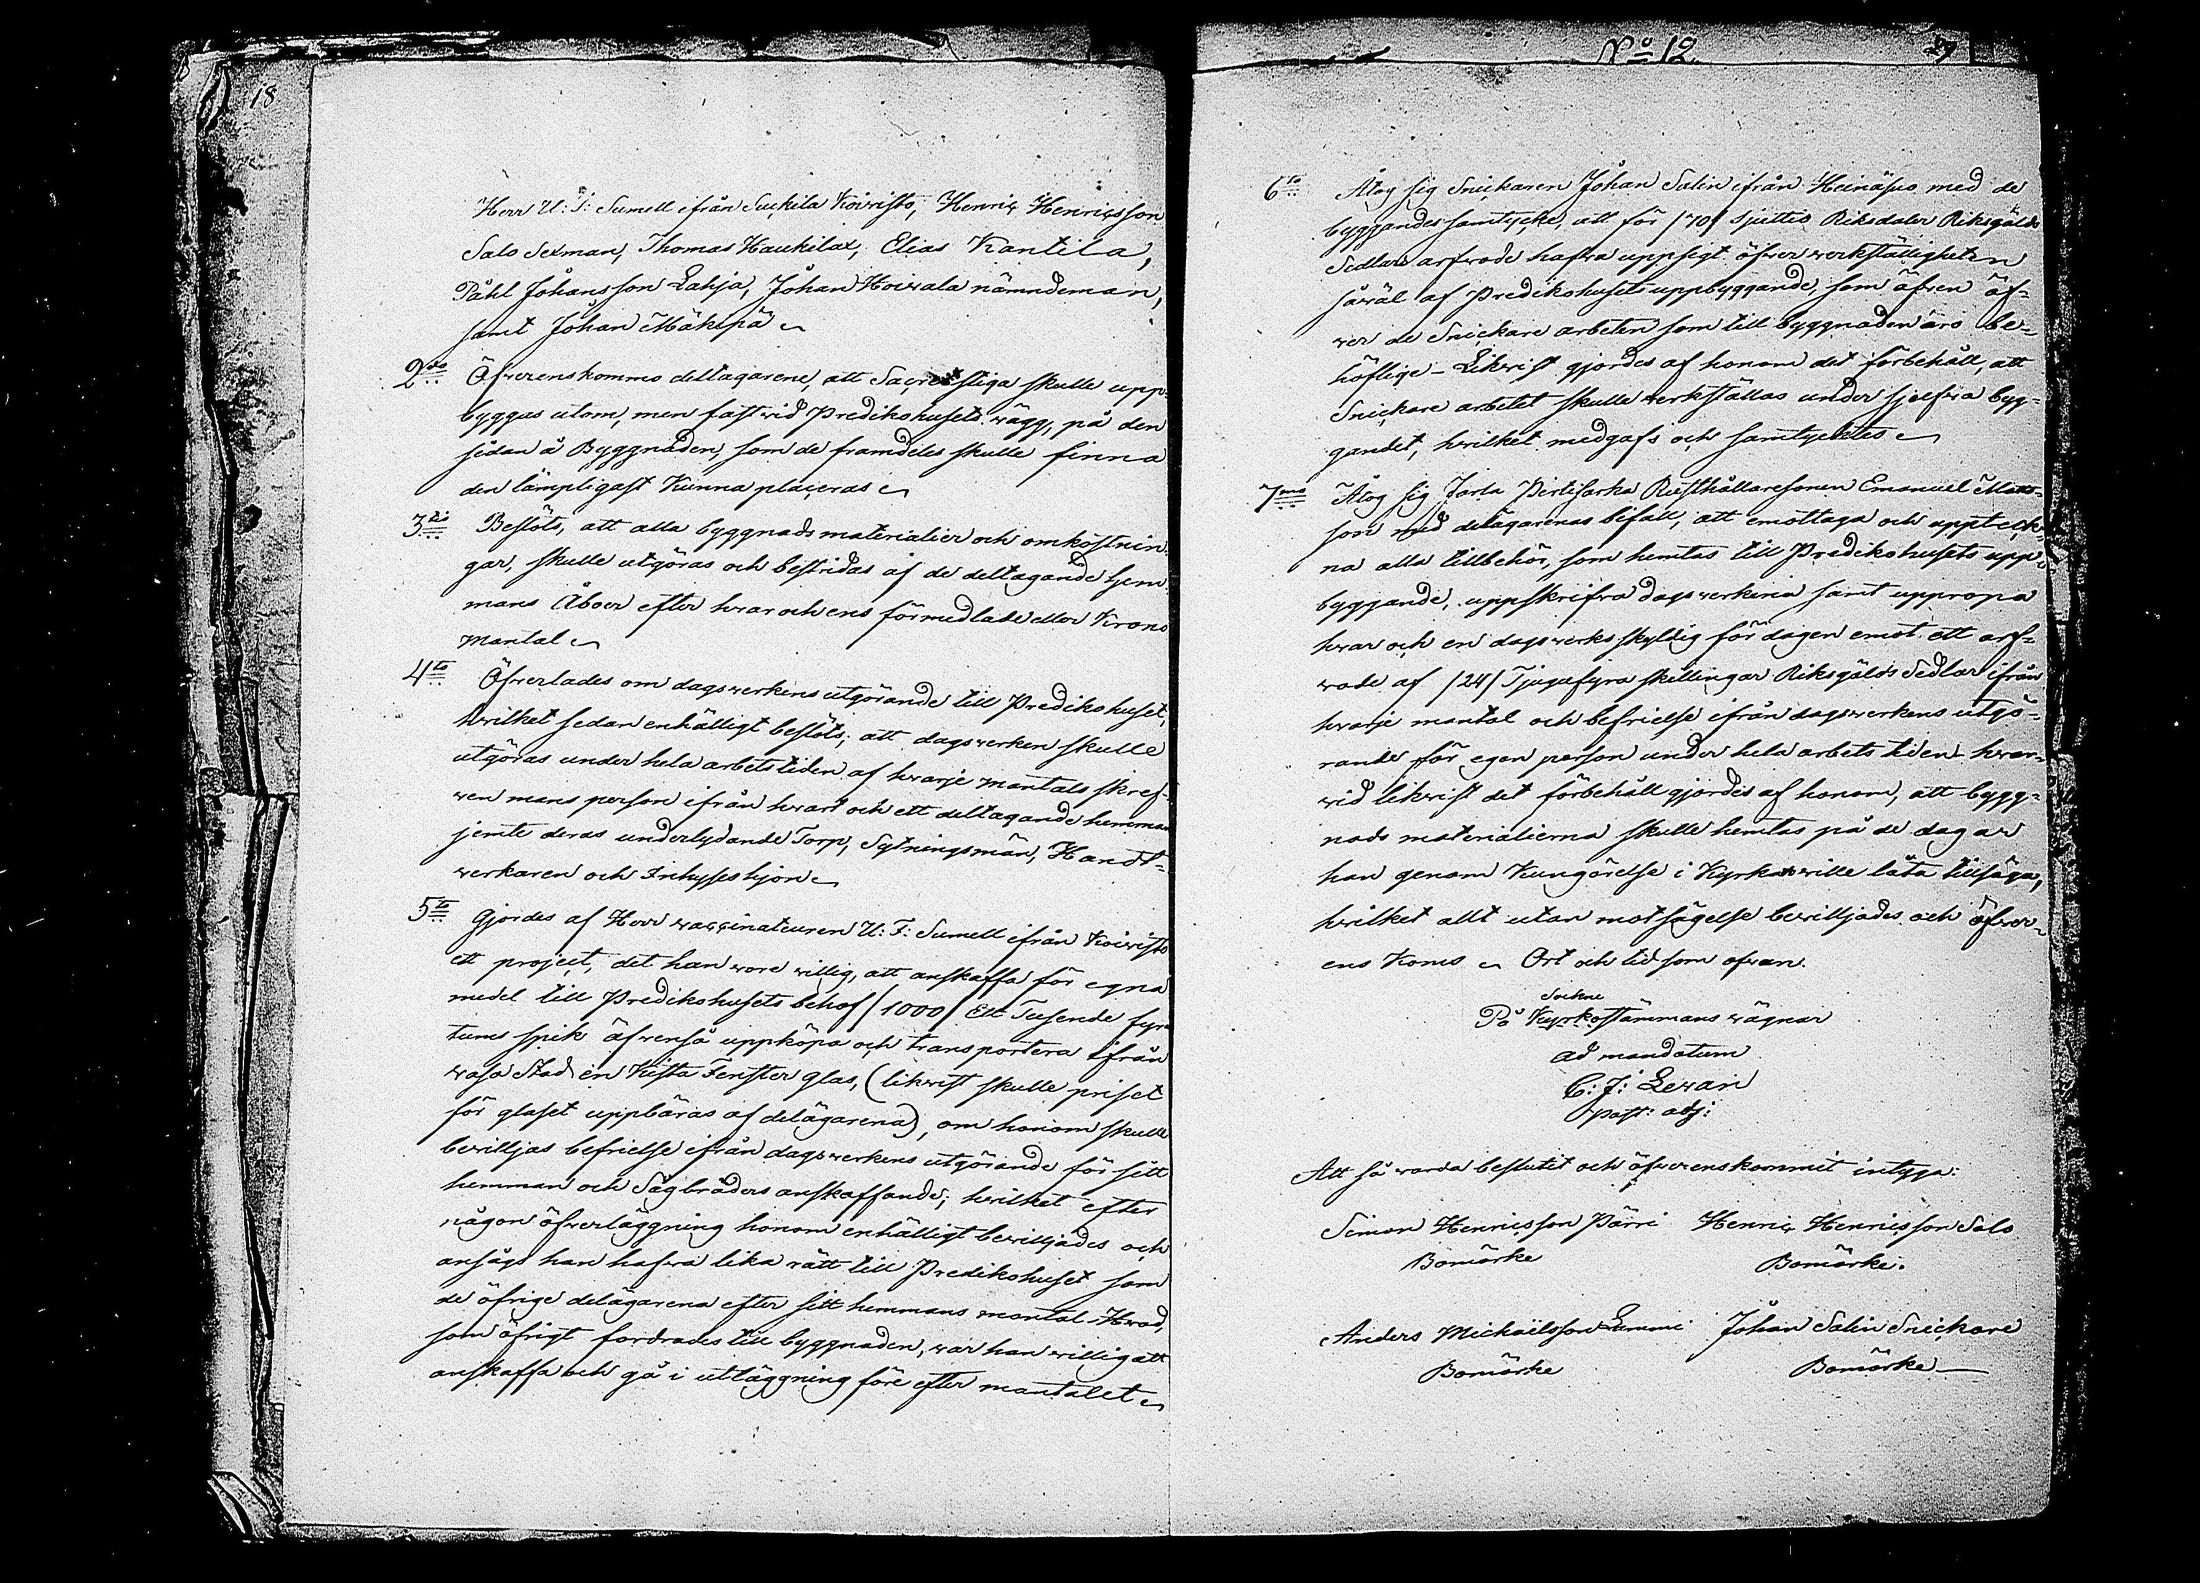 18
Herr U: F: Sumell ifrån Suckila Koivisto, Henric Henricsson
Salo Sexman, Thomas Haukilax, Elias Kantila,
Påhl Johansson Lahja, Johan Hoivala nämndeman,
samt Johan Mäkipä
2do Öfverenskommo deltagarene, att Sacrestiga skulle upp-
byggas utom, men fast vid Predikohusets vägg, på den
sidan å Byggnaden, som de framdeles skulle finna
den lämpligast kunna placeras
3tio Beslöts, att alla byggnads materialier och omkostnin-
gar, skulle utgöras och bestridas af de deltagande hem-
mans Åboer efter hvar och ens förmedlade eller Krono
mantal
4to Öfverlades om dagsverkens utgörande till Predikohuset,
hvilket sedan enhälligt beslöts; att dagsverken skulle
utgöras under hela arbetstiden af hvarje mantals skref-
ven mans person ifrån hvart och ett deltagande hemman
jemte deras underlydande Torp, Sytningsmän, Handt-
verkaren och Inhysseshjon
5to Gjordes af Herr vaccinateuren U: F: Sumell ifrån Koivisto
ett project, det han vore villig, att anskaffa för egna
medel till Predikohusets behof /1000/ Ett Tusende fyra
tums spik äfvenså uppköpa och transportera ifrån
Vasa Stad en Kista Fenster glas, (likvist skulle priset
för glaset uppbäras af delägarena), om honom skulle
beviljas befrielse ifrån dagsverkens utgörande för sitt
hemman och Sågbräders anskaffande; hvilket efter
någon öfverläggning honom enhälligt beviljades och
ansågs han hafva lika rätt till Predikohuset som
de öfrige delägarena efter sitt hemmans mantal. Hvad,
som öfrigt fordrades till byggnaden, var han villig att
anskaffa och gå i utläggning före efter mantalet
No 12.
29
6to Åtog sig Snickaren Johan Salin ifrån Heinäsuo med de
byggandes samtycke, att för /70/ sjuttio Riksdaler Riksgälds
Sedlars arfvode hafva uppsigt öfver verkställigheten
såväl af Predikohusets uppbyggande, som äfven öf-
ver de Snickare arbeten som till byggnaden äro be-
höflige - Likvist gjordes af honom det förbehåll, att
Snickare arbetet skulle verkställas under sjelfva byg-
gandet, hvilket medgafs och samtycktes
7mo Åtog sig Jorla Pirtisarka Rusthållaresonen Emanuel Matts-
son med delägarenas bifall, att emottaga och uppteck-
na alla tillbehör, som hemtas till Predikohusets upp-
byggande, uppskrifva dagsverkena samt uppropa
hvar och en dagsverks skyldig för dagen emot ett arf-
vode af /24/ Tjugufyra skillingar Riksgälds Sedlar ifrån
hvarje mantal och befrielse ifrån dagsverkens utgö-
rande för egen person under hela arbets tiden - hvar-
vid likvist det förbehåll gjordes af honom, att bygg-
nads materialierna skulle hemtas på de dagar
han genom Kungörelse i Kyrkan ville låta tillsäga,
hvilket allt utan motsägelse beviljades och öfver-
ens koms Ort och tid som ofvan.
Sockne
På Kyrkostämmans vägnar
ad mandatum
C: J: Levan
past: adj:
Att så varda beslutit och öfverenskommit intyga:
Simon Henricsson Pärri Henric Henricsson Salo
Bomärke Bomärke.
Anders Michaelsson Lummi Johan Salin Snickare
Bomärke Bomärke